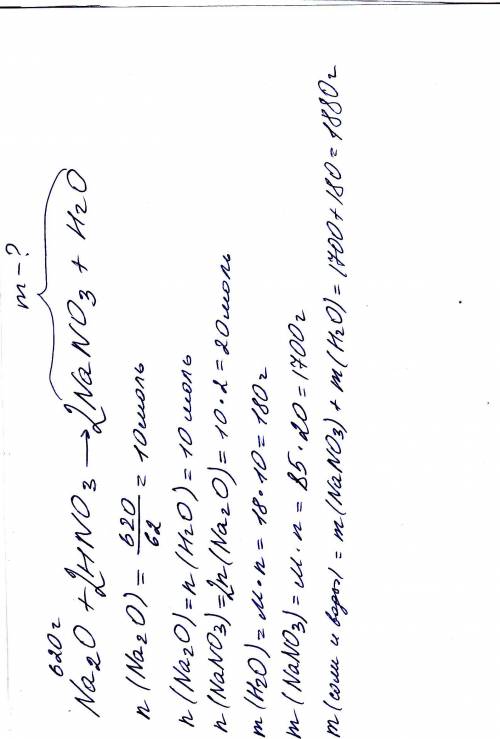 m – ?
620 г
Na2O + 2HNO3 → 2NaNO3 + H2O
n (Na2O) = 620/62 = 10 моль
n (Na2O) = n (H2O) = 10 моль
n (NaNO3) = 2n (Na2O) = 10 · 2 = 20 моль
m (H2O) = M · n = 18 · 10 = 180 г
m (NaNO3) = M · n = 85 · 20 = 1700 г
m (соли и воды) = m (NaNO3) + m (H2O) = 1700 + 180 = 1880 г